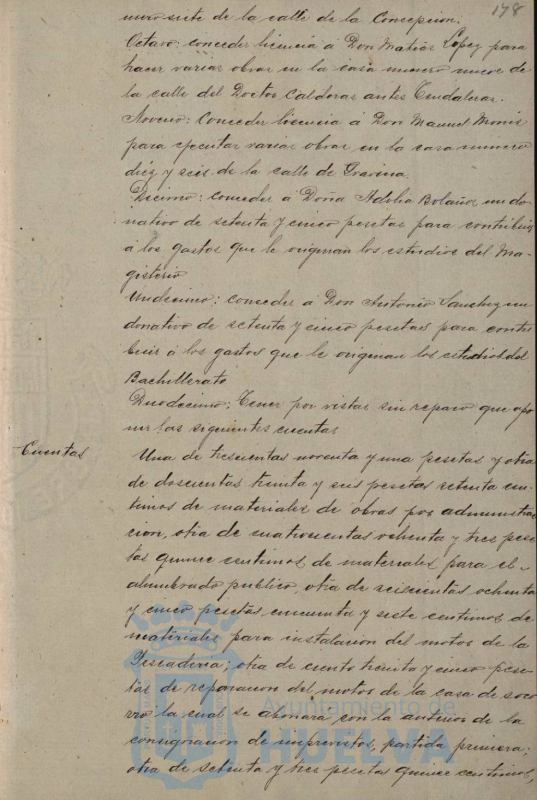 178
mero siete de la calle de la Concepcion.
Octavo: conceder licencia á Don Matias Lopez para
hacer varias obras en la casa numero nueve de
la calle del Doctor Caldera antes
Noveno: Conceder licencia á Don Manuel Monis
para ejecutar varias obras en la casa numero
diez y seis de la calle de Gravina.
Decimo: conceder á Doña Adelia Bolaños un do-
nativo de setenta y cinco pesetas para contribuir
á los gastos que le originan los estudios del Ma-
gisterio
Undecimo: conceder á Don Antonio Sanchez un
donativo de setenta y cinco pesetas para contri
buir á los gastos que le originan los estudios del
Bachillerato
Duodecimo: Tener por vistas sin reparo que opo
ner las siguientes cuentas
Cuentas
Una de trescientas noventa y una pesetas y otra
de doscientas treinta y seis pesetas setenta cen-
timos de materiales de obras por administra
cion, otra de cuatrocientas ochenta y tres pese
tas quince centimos de materiales para el
alumbrado publico, otra de seiscientas ochenta
y cinco pesetas cincuenta y siete centimos de
materiales para instalacion del motor de la
Pescaderia; otra de ciento treinta y cinco pese-
tas de reparacion del motor de la casa de soco
rro la cual se abonará con la anterior de la
consignacion de imprevistos, partida primera;
otra de setenta y tres pesetas quince centimos,
Ayuntamiento de
HUELVA